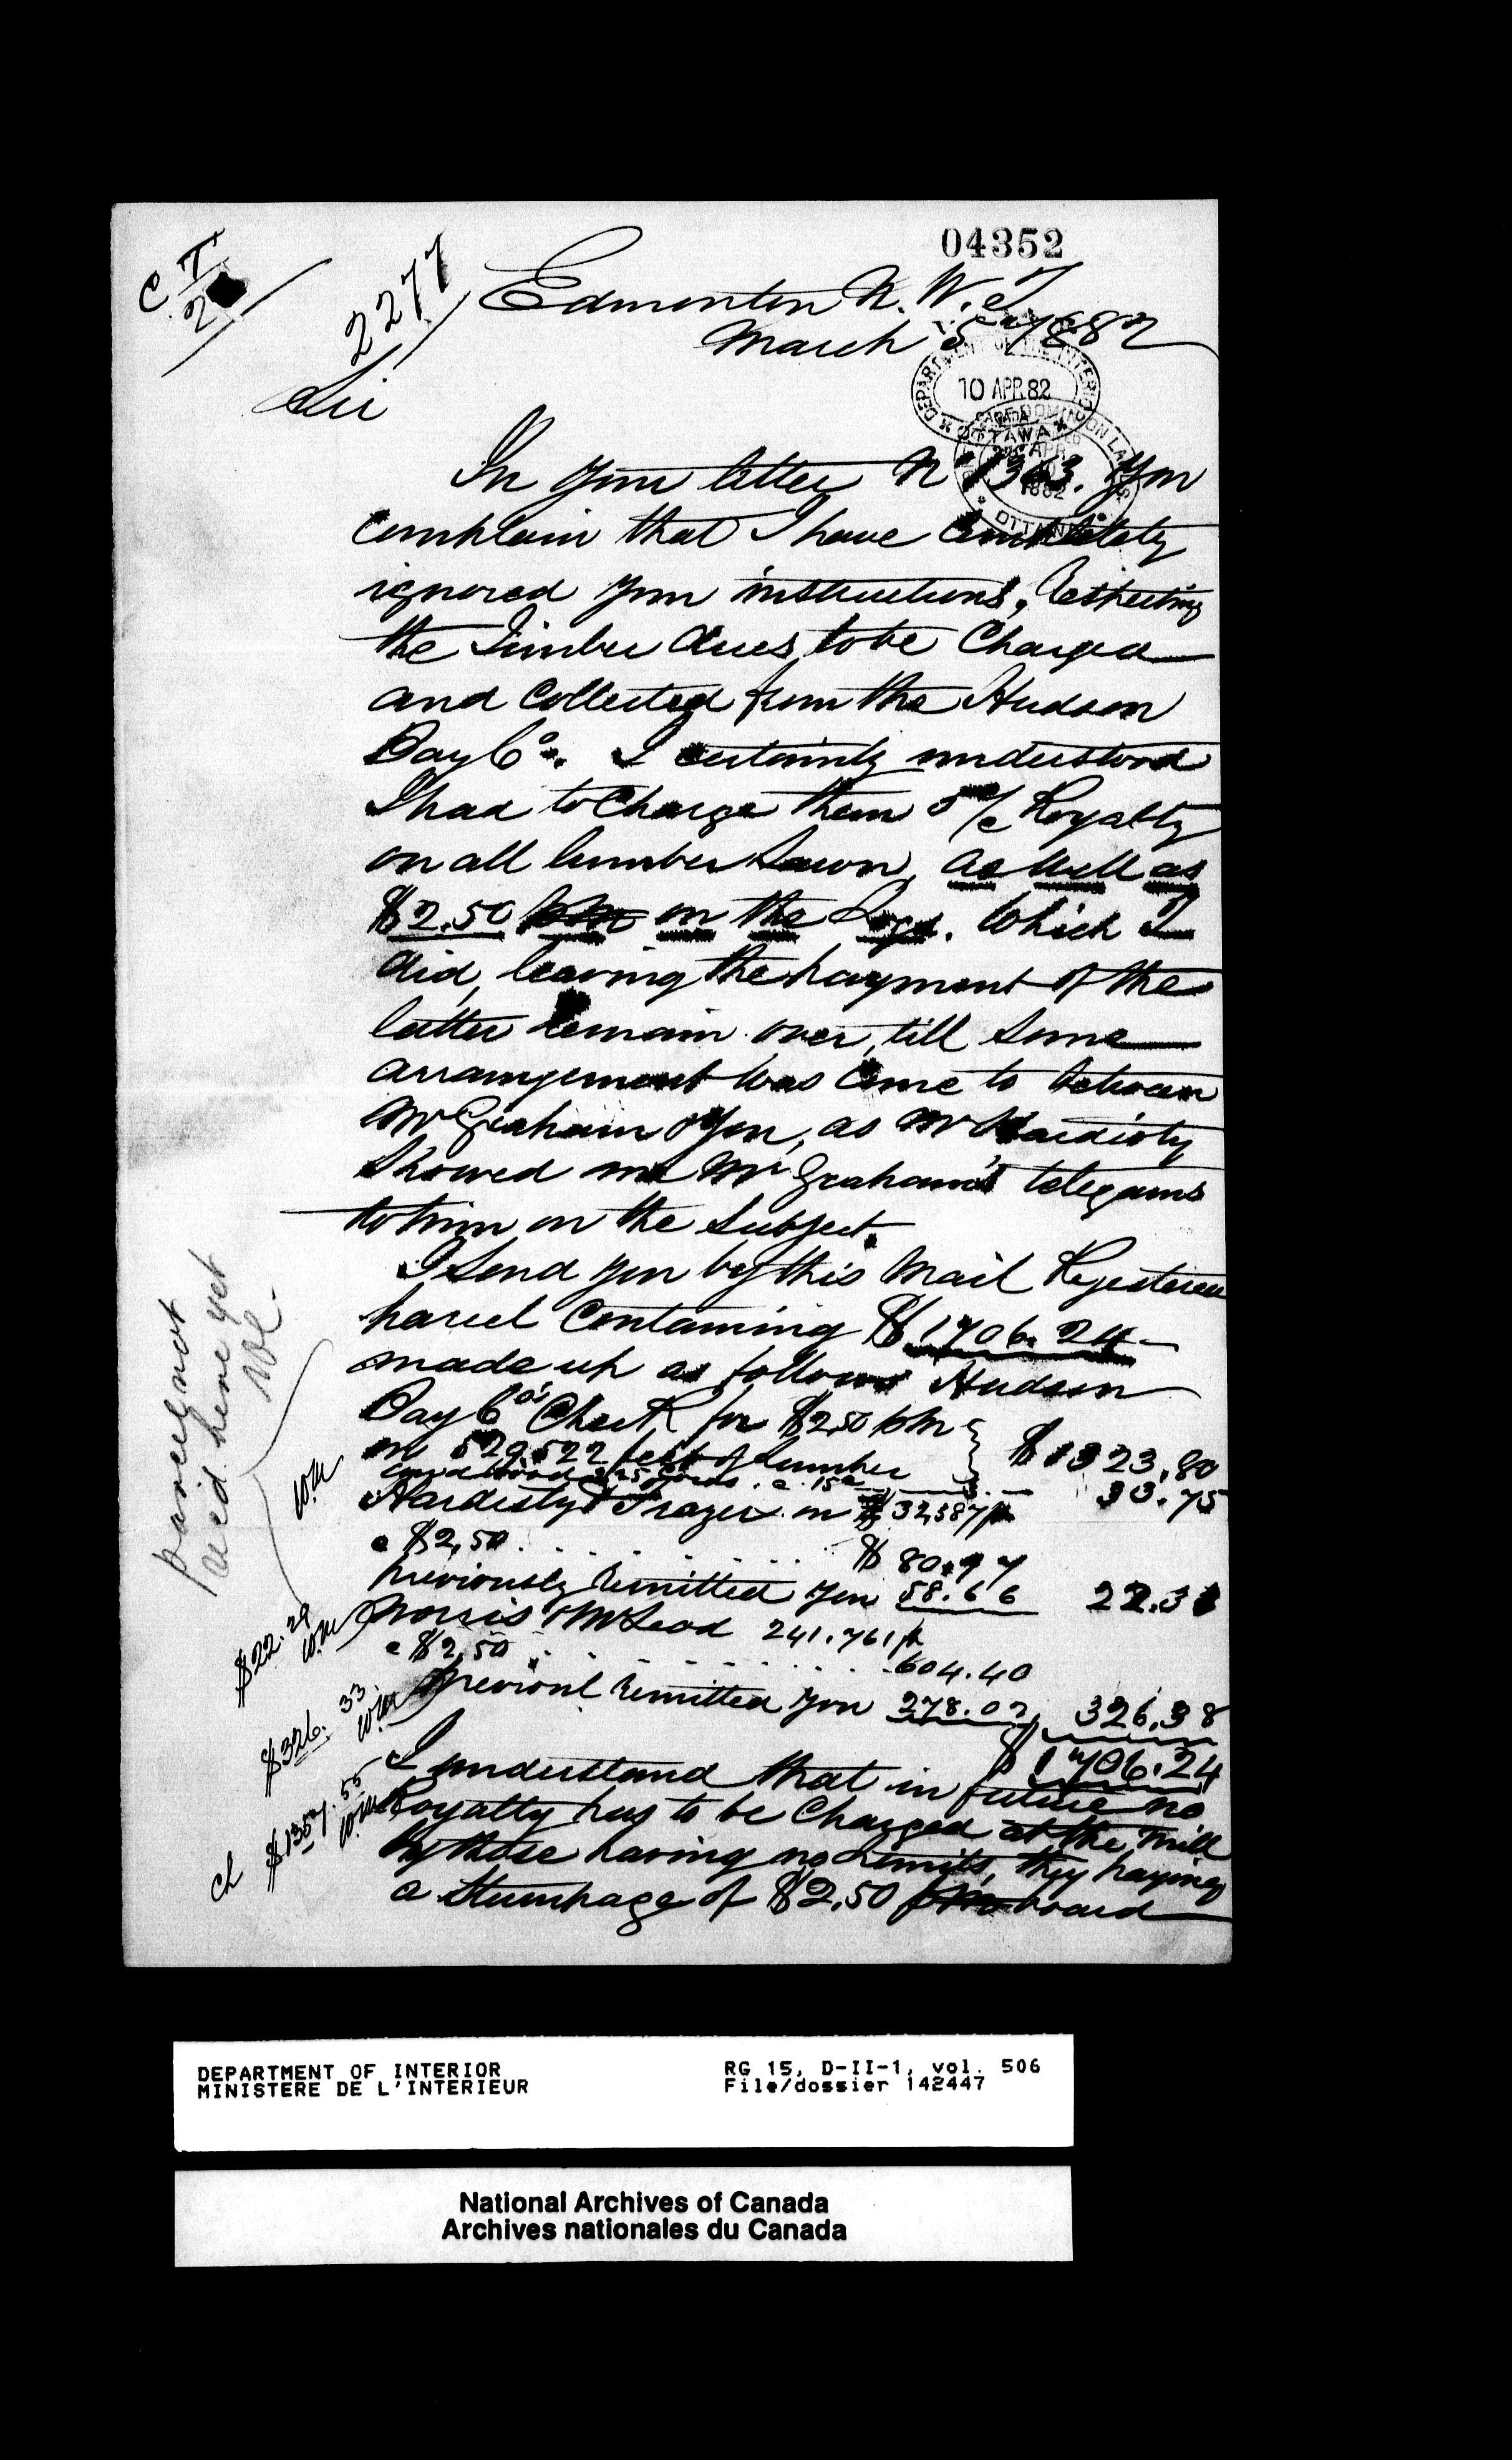 04352
C T/2
2277
Edmonton N.W.T
March 5th 1882
DEPARTMENT OF THE INTERIOR
10 APR 82
OTTAWA
DOMINION LANDS
APR
1882
OTTAWA
Sir
In your letter No 1363. You
complain that I have completely
ignored your instructions, respecting
the Timber dues, to be Charged
and Collected from the Hudson
Bay Co. I certainly understood
I had to Charge them 5 % Royalty
on all lumber Sawn, as well as
$2.50 pm on the Logs. Which I
did, leaving the payment of the
latter remain over, till some
arrangement was come to between
Mr Graham & You, as Mr Hardisty
Showed me Mr Graham's telegams
to him on the Subject.
I Send you by this Mail Registered
parcel Containing $1706.24
made up as follows Hudson
Bay Co's Check for $2,50 pm
on 529.522 feet of Lumber $1323.80
Cordwood 225 Cords. @ 15c 33.75
Hardisty & Frazer on 32,387 ft
@ $2,50 $80.97
previously remitted you 58.66 22.31
Norris & McLeod 241.761 ft
@ $2,50 604.40
previous remitted you 278.02 326.38
$1706.24
I understand that in future no
Royalty has to be Charged at the Mill
by those having no Limits, they paying
a Stumpage of $2.50 pm board
parcel not
recd here yet
WM
$22.29
WM
$326.33
WM
$1357.55
WM
ch
DEPARTMENT OF INTERIOR
MINISTERE DE L'INTERIEUR
RG 15, D-II-1, vol. 506
File/dossier 142447
National Archives of Canada
Archives nationales du Canada